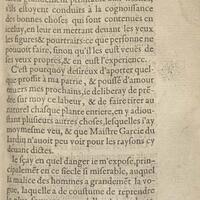 ils estoyent conduits à la cognoissance
des bonnes choses qui sont contenues en
icelluy, en leur en mettant deuant les yeux,
les figures & pourtraits: ce que personne ne
pouuoit faire, sinon qu'il les eust veuës de
ses yeux propres, & en eust l'experience.
C'est pourquoy desireux d'aporter quel-
que profit à ma patrie, & poussé d'amour
enuers mes prochains, ie deliberay de pren-
dre sur moy ce labeur, & de faire tirer au
naturel chasque plante entiere, en y adiou-
stant plusieurs autres choses, lesquelles i'ay
moy mesme veu, & que Maistre Garcie du
Iardin n'auoit peu voir pour les raysons cy
deuant dictes.
Ie sçay en quel danger ie m'expose, prin-
cipalement en ce siecle si miserable, auquel
la malice des hommes a grandement la vo-
gue, laquelle a de coustume de reprendre